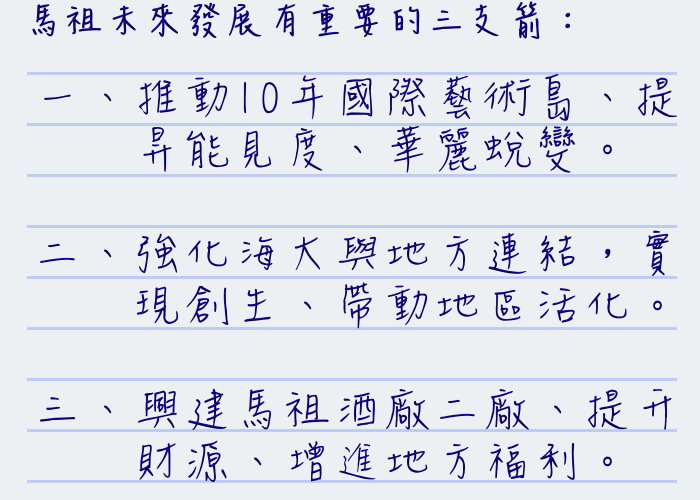 馬祖未來發展有重要的三支箭：
一、推動10年國際藝術島、提
昇能見度、華麗蛻變。
二、強化海大與地方連結，實
現創生、帶動地區活化。
三、興建馬祖酒廠二廠、提升
財源、增進地方福利。